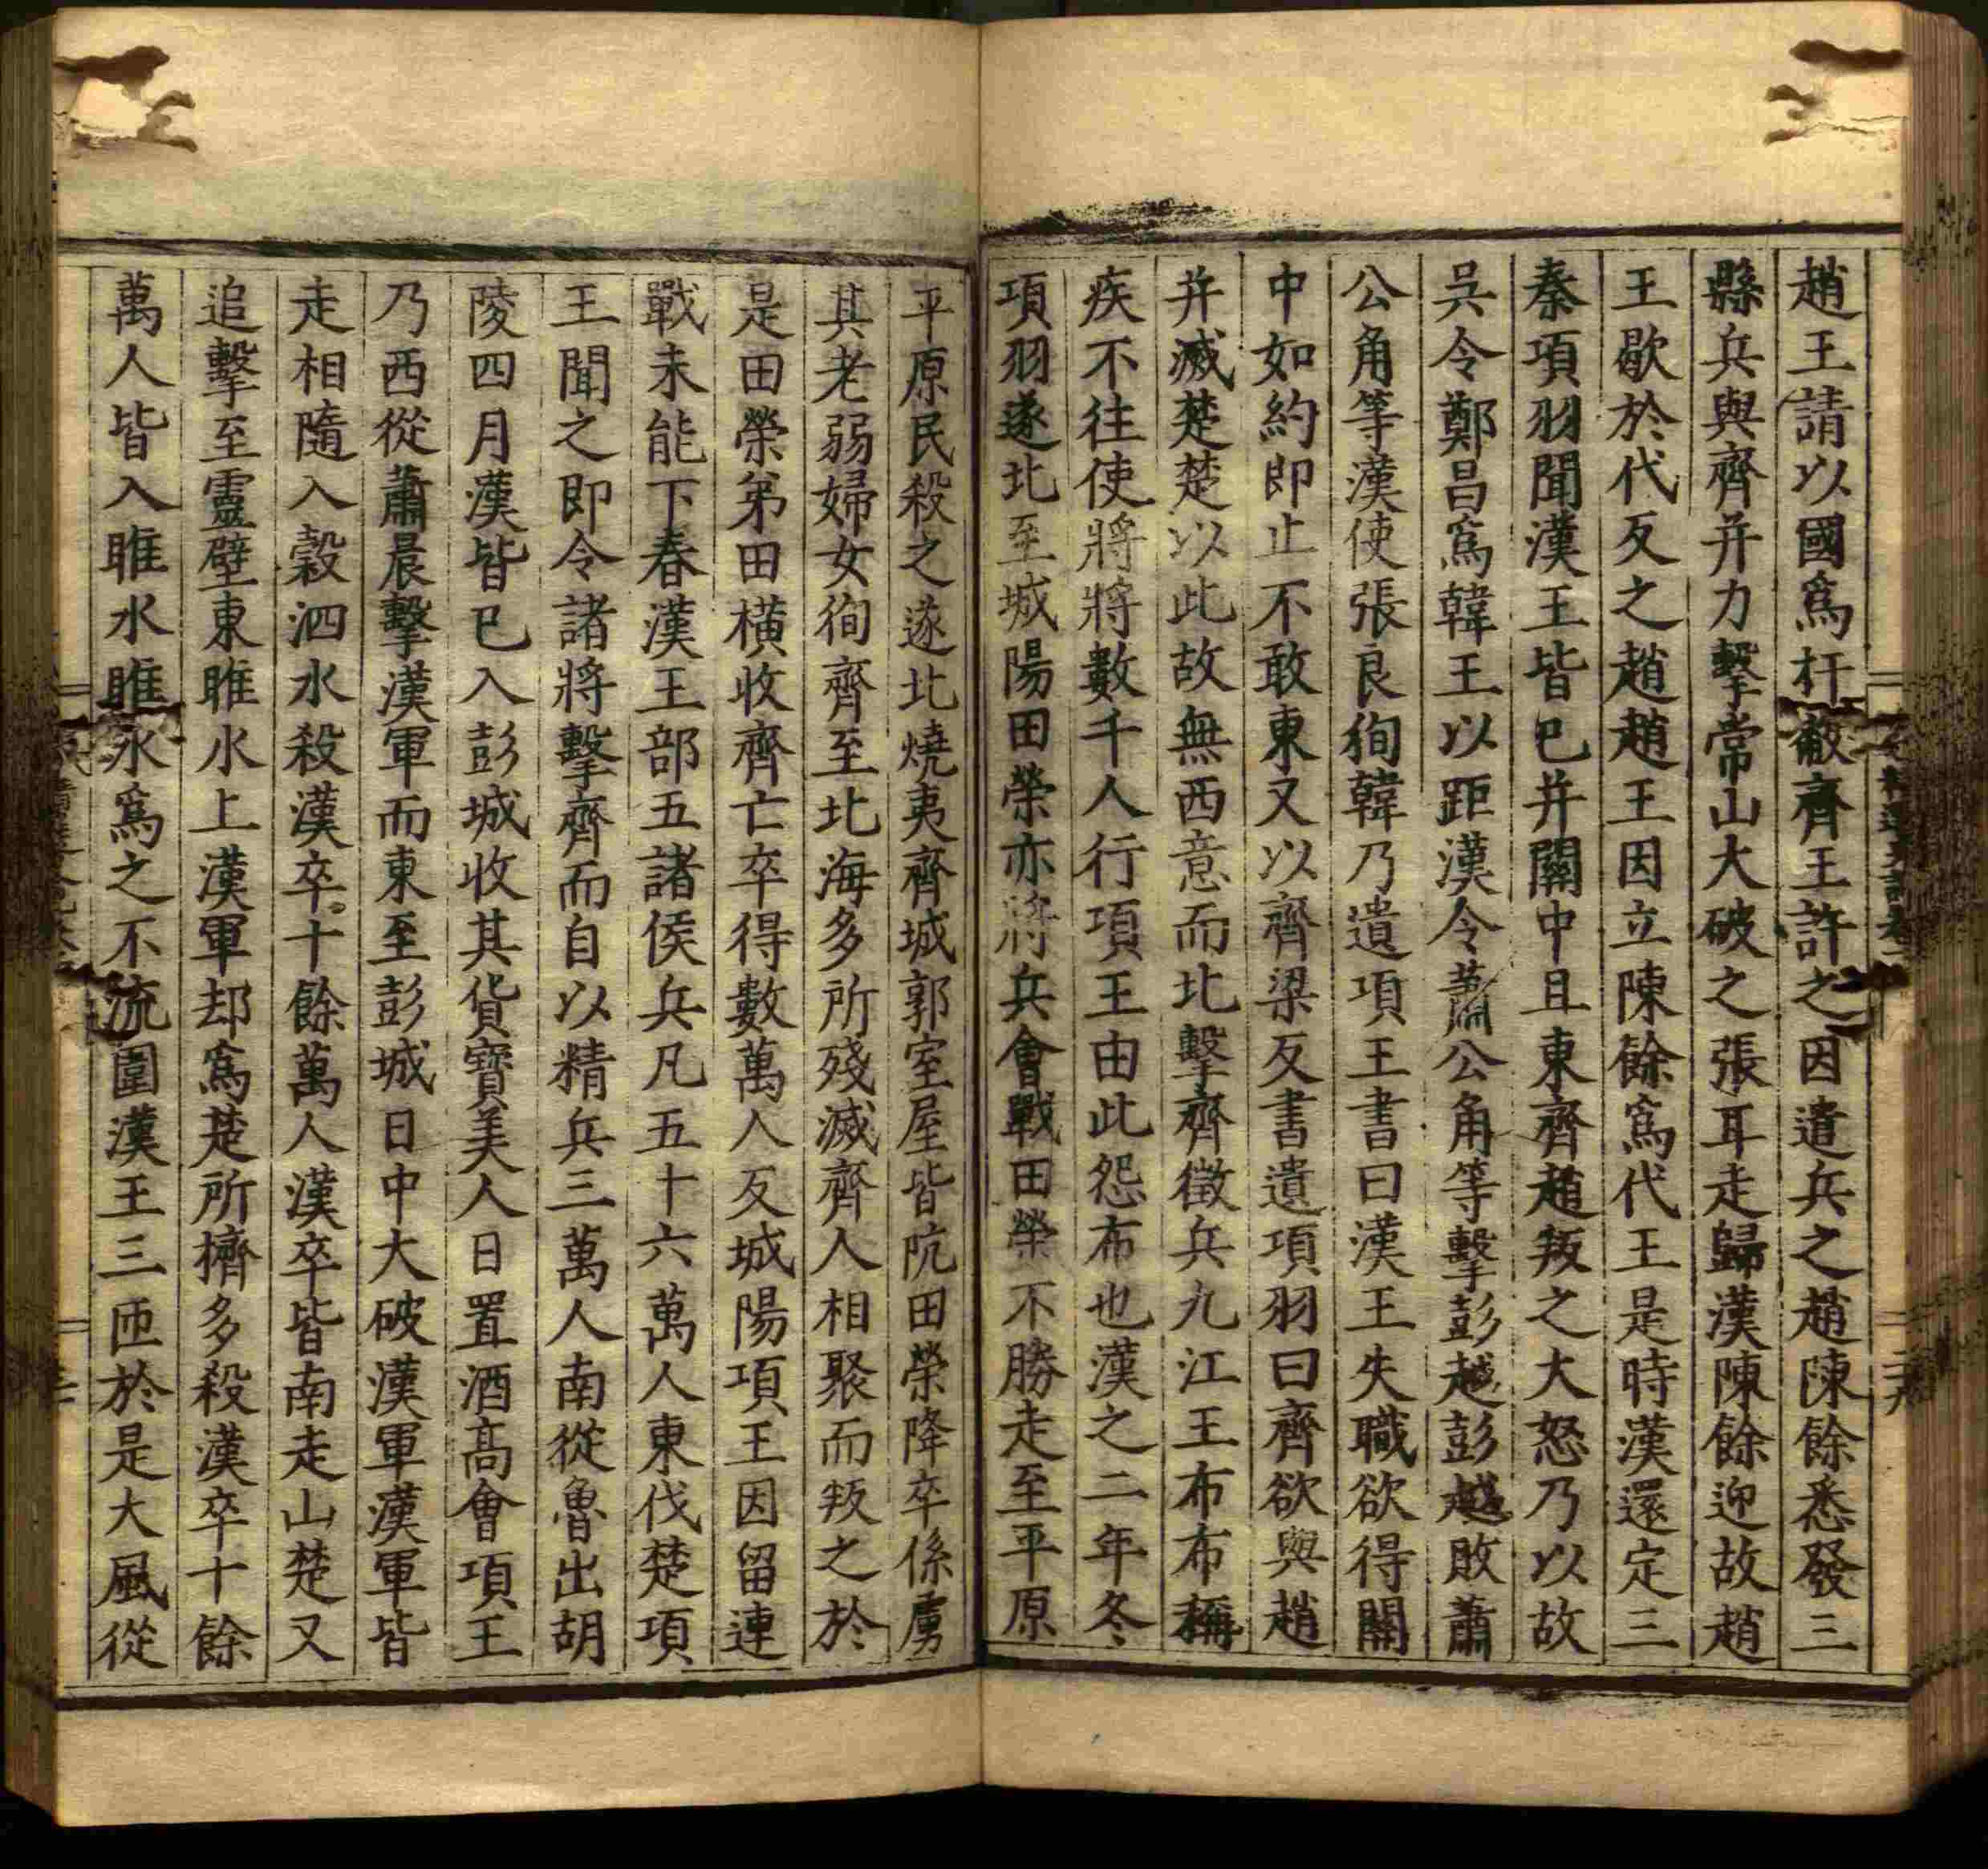 趙王請以國爲杆蔽齊王許之因遣兵之趙陳餘悉發三
縣兵與齊并力擊常山大破之張耳走歸漢陳餘迎故趙
王歇於代反之趙趙王因立陳餘爲代王是時漢還定三
秦項羽聞漢王皆已并關中且東齊趙叛之大怒乃以故
吳令鄭昌爲韓王以距漢令蕭公角等擊彭越彭越敗蕭
公角等漢使張良徇韓乃遺項王書曰漢王失職欲得關
中如約即止不敢東又以齊梁反書遺項羽曰齊欲與趙
并滅楚楚以此故無西意而北擊齊徵兵九江王布布稱
疾不往使將將數千人行項王由此怨布也漢之二年冬
項羽遂北至城陽田榮亦將兵會戰田榮不勝走至平原
平原民殺之遂北燒夷齊城郭室屋皆阬田榮降卒係虜
其老弱婦女徇齊至北海多所殘滅齊人相聚而叛之於
是田榮弟田橫收齊亡卒得數萬人反城陽項王因留連
戰未能下春漢王部五諸侯兵凡五十六萬人東伐楚項
王聞之即令諸將擊齊而自以精兵三萬人南從魯出胡
陵四月漢皆已入彭城收其貨寶美人日置酒高會項王
乃西從蕭晨擊漢軍而東至彭城日中大破漢軍漢軍皆
走相隨入穀泗水殺漢卒十餘萬人漢卒皆南走山楚又
追擊至靈壁東睢水上漢軍却爲楚所擠多殺漢卒十餘
萬人皆入睢水睢水爲之不流圍漢王三匝於是大風從